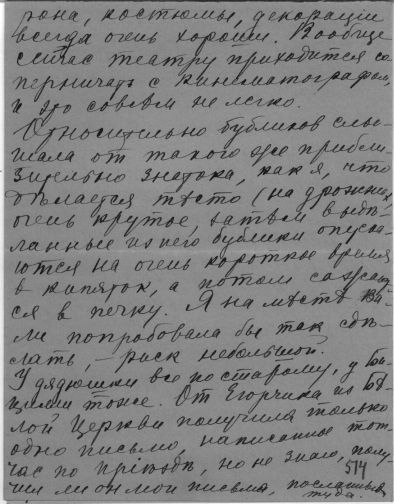 рона, костюмы, декораціи
всегда очень хороши. Вообще
сейчас театру приходится со
перничать с кинематографом,
и это совсем не легко.
Относительно бубликов слы-
шала от такого же прибли-
зительно знатока, как я, что
дѣлается тѣсто (на дрожжах)
очень крутое, затѣм выдѣ-
ланные из него бублики опуска-
ются на очень короткое время
в кипяток, а потом сажают-
ся в печку. Я на мѣстѣ Ва-
ли попробовала бы так сдѣ-
лать, – риск небольшой.
У дядюшки все по старому, у
тоже. От Егорчика из Бѣ-
лой Церкви получила только
одно письмо, написанное тот-
час по пріѣздѣ, но не знаю, полу-
чил ли он мои письма, посланныя
туда.
514